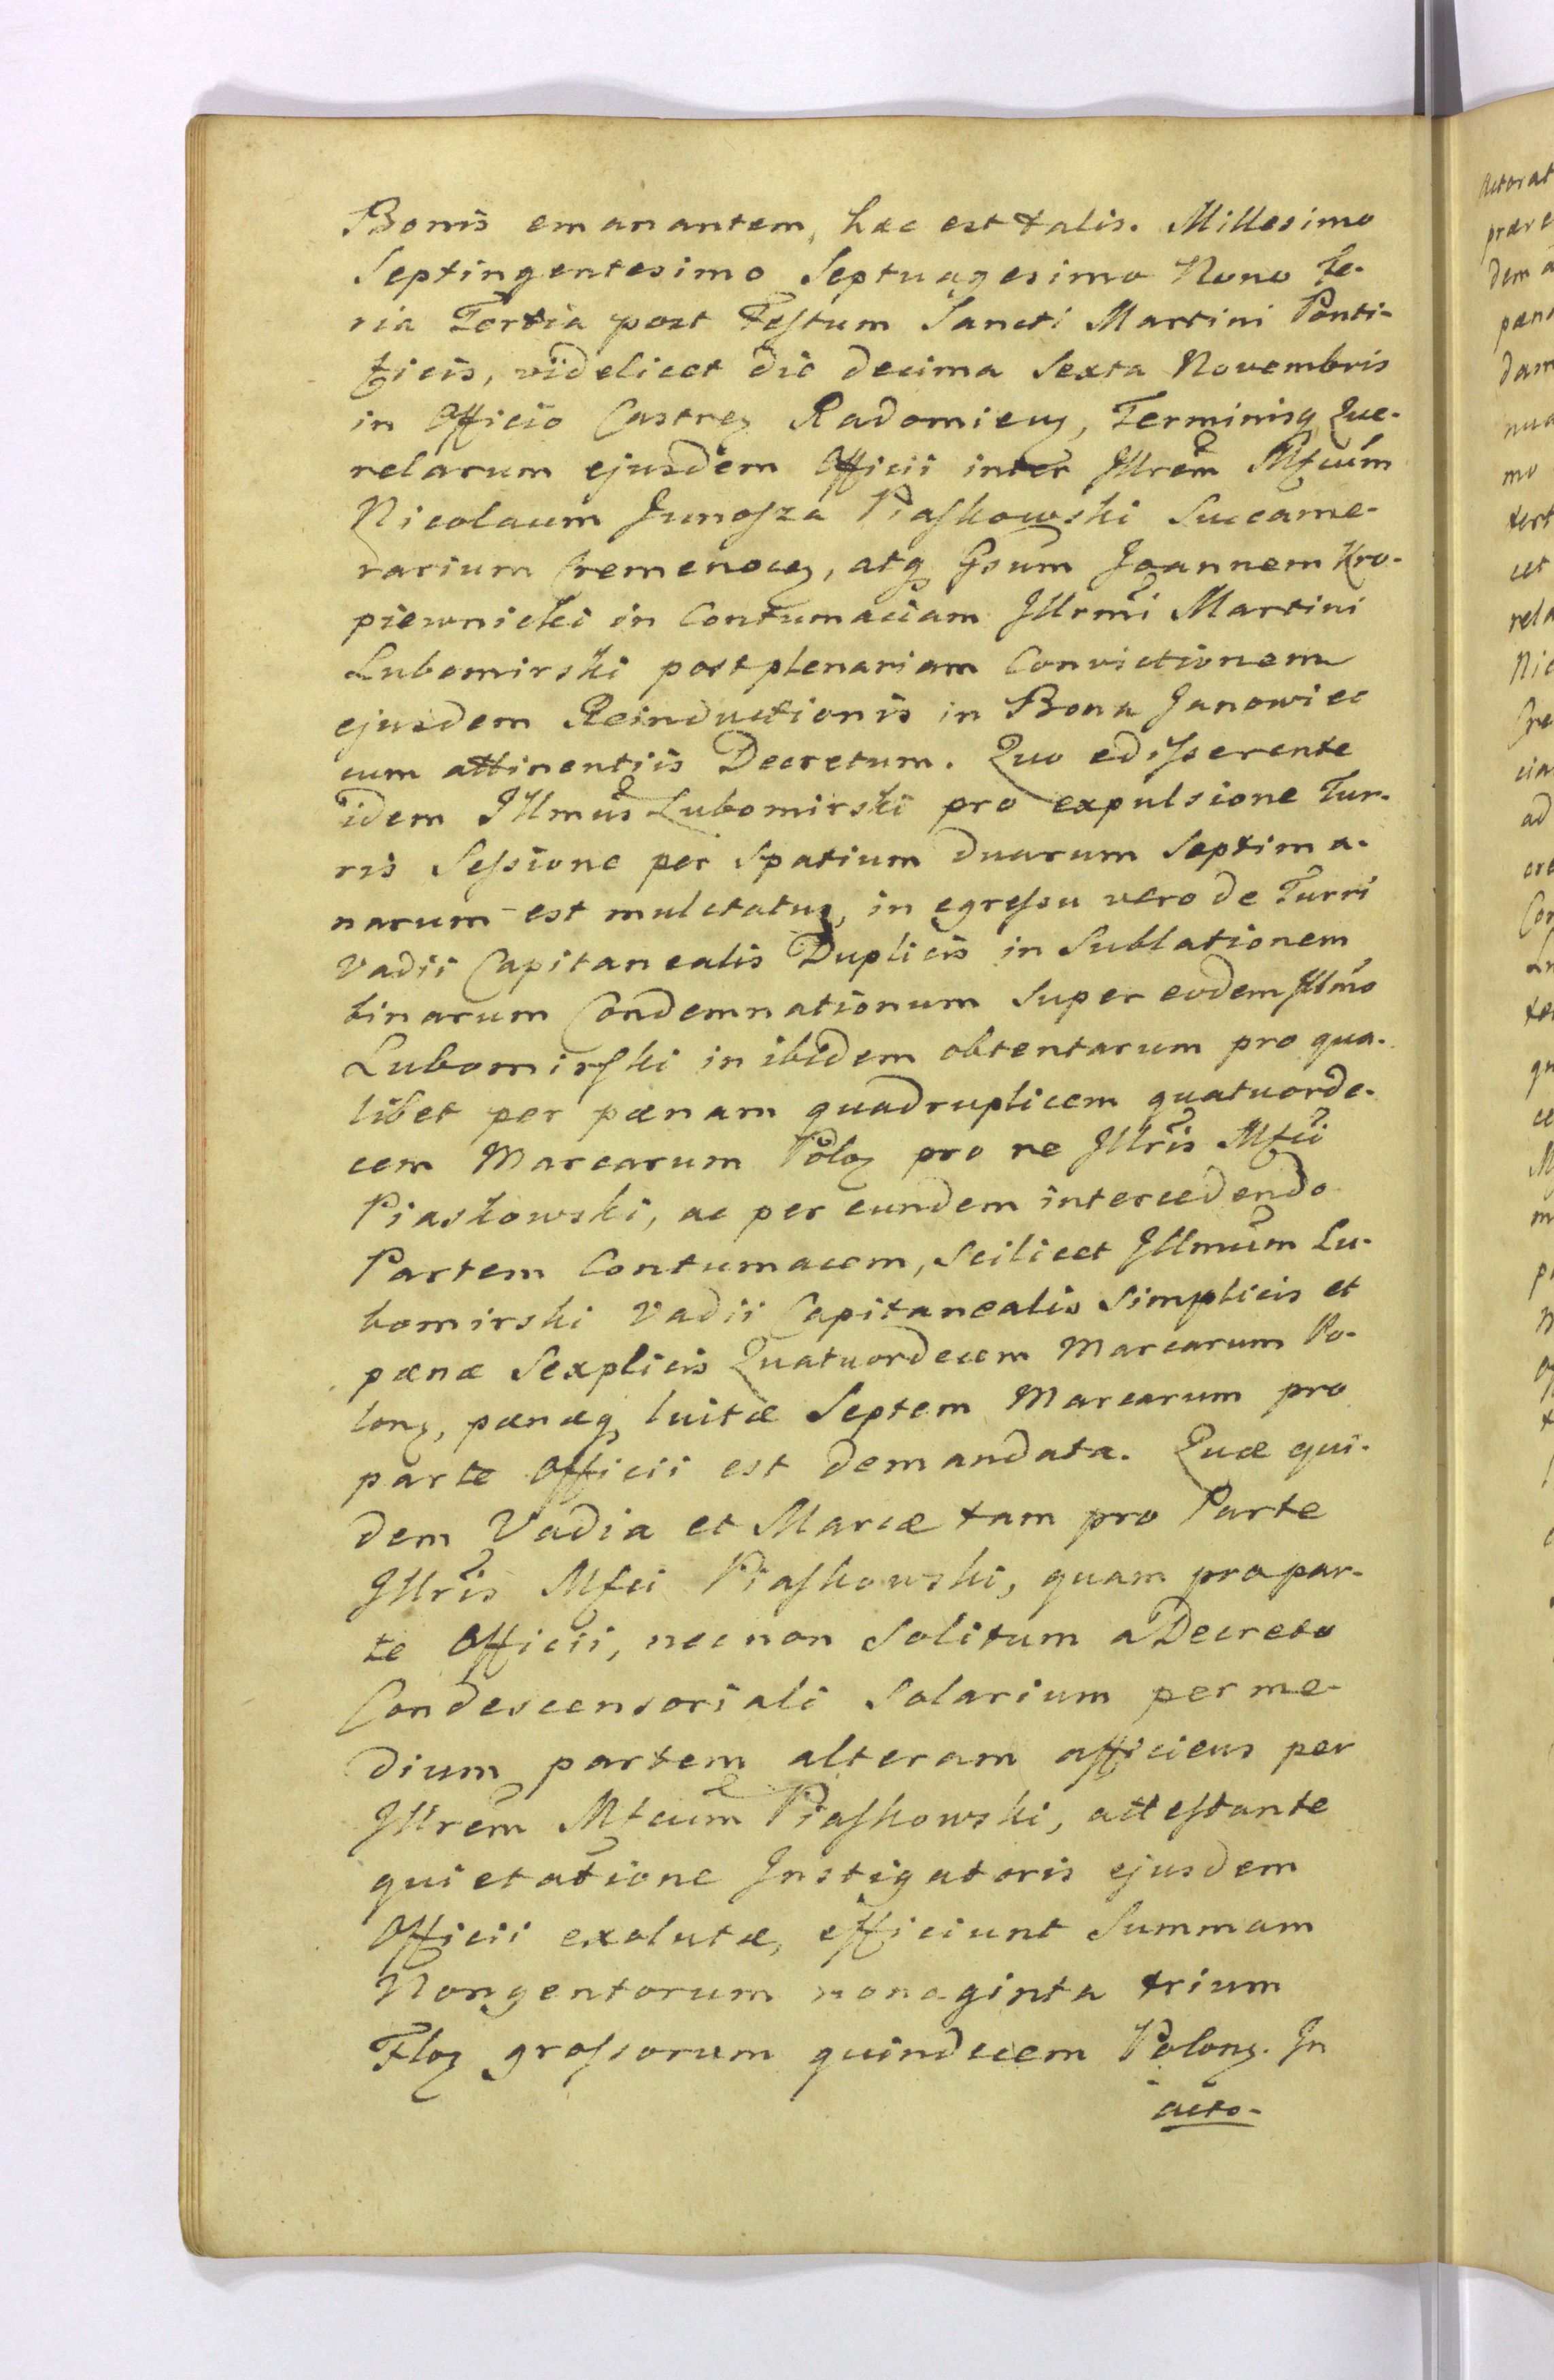 Bonis emanantem, hæc est talis. Millesimo
Septingentesimo Septuagesimo Nono Fe-
ria Tertia post Festum Sancti Martini Ponti-
ficis, videlicet die decima Sexta Novembris
in Officio Castreꝫ Radomieꝫ, Terminisqꝫ Que-
relarum ejusdem Officii inter Jllrem Mfcum
Nicolaum Junosza Piaskowski Succame-
rarium Cremenoceꝫ, atqꝫ Gsum Joannem Kro-
piewnicki in Contumaciam Jllrmi Martini
Lubomirski post plenariam Convictionem
ejusdem Reinductionis in Bona Janowiec
cum attinentiis Decretum. Quo edisserente
idem Jllmus Lubomirski pro expulsione Tur-
ris Sessione per Spatium duarum Septima-
narum est mulctatus, in egressu vero de Turri
Vadii Capitanealis Duplicis in Sublationem
binarum Condemnationum Super eodem Jllmo
Lubomirski in ibidem obtentarum pro qua-
libet per pænam quadruplicem quatuorde-
cem Marcarum Poloꝫ pro re Jllris Mfci
Piaskowski, ac per eundem intercedendo
Partem Contumacem, Scilicet Jllmum Lu-
bomirski Vadii Capitanealis Simplicis et
pænæ Sexplicis Quatuordecem Marcarum Po-
lonꝫ, pænæqꝫ luitæ Septem Marcarum pro
parte Officii est demandata. Quæ qui-
dem Vadia et Marcæ tam pro Parte
Jllris Mfci Piaskowski, quam pro par-
te Officii, nec non Solitum a Decreto
Condescensoriali Solarium per me-
dium partem alteram afficiens per
Jllrem Mfcum Piaskowski, attestante
quietatione Instigatoris ejusdem
Officii exolutæ, efficiunt Summam
Nongentorum nonaginta trium
Floꝫ grossorum quindecem Polonꝫ. In
acto-